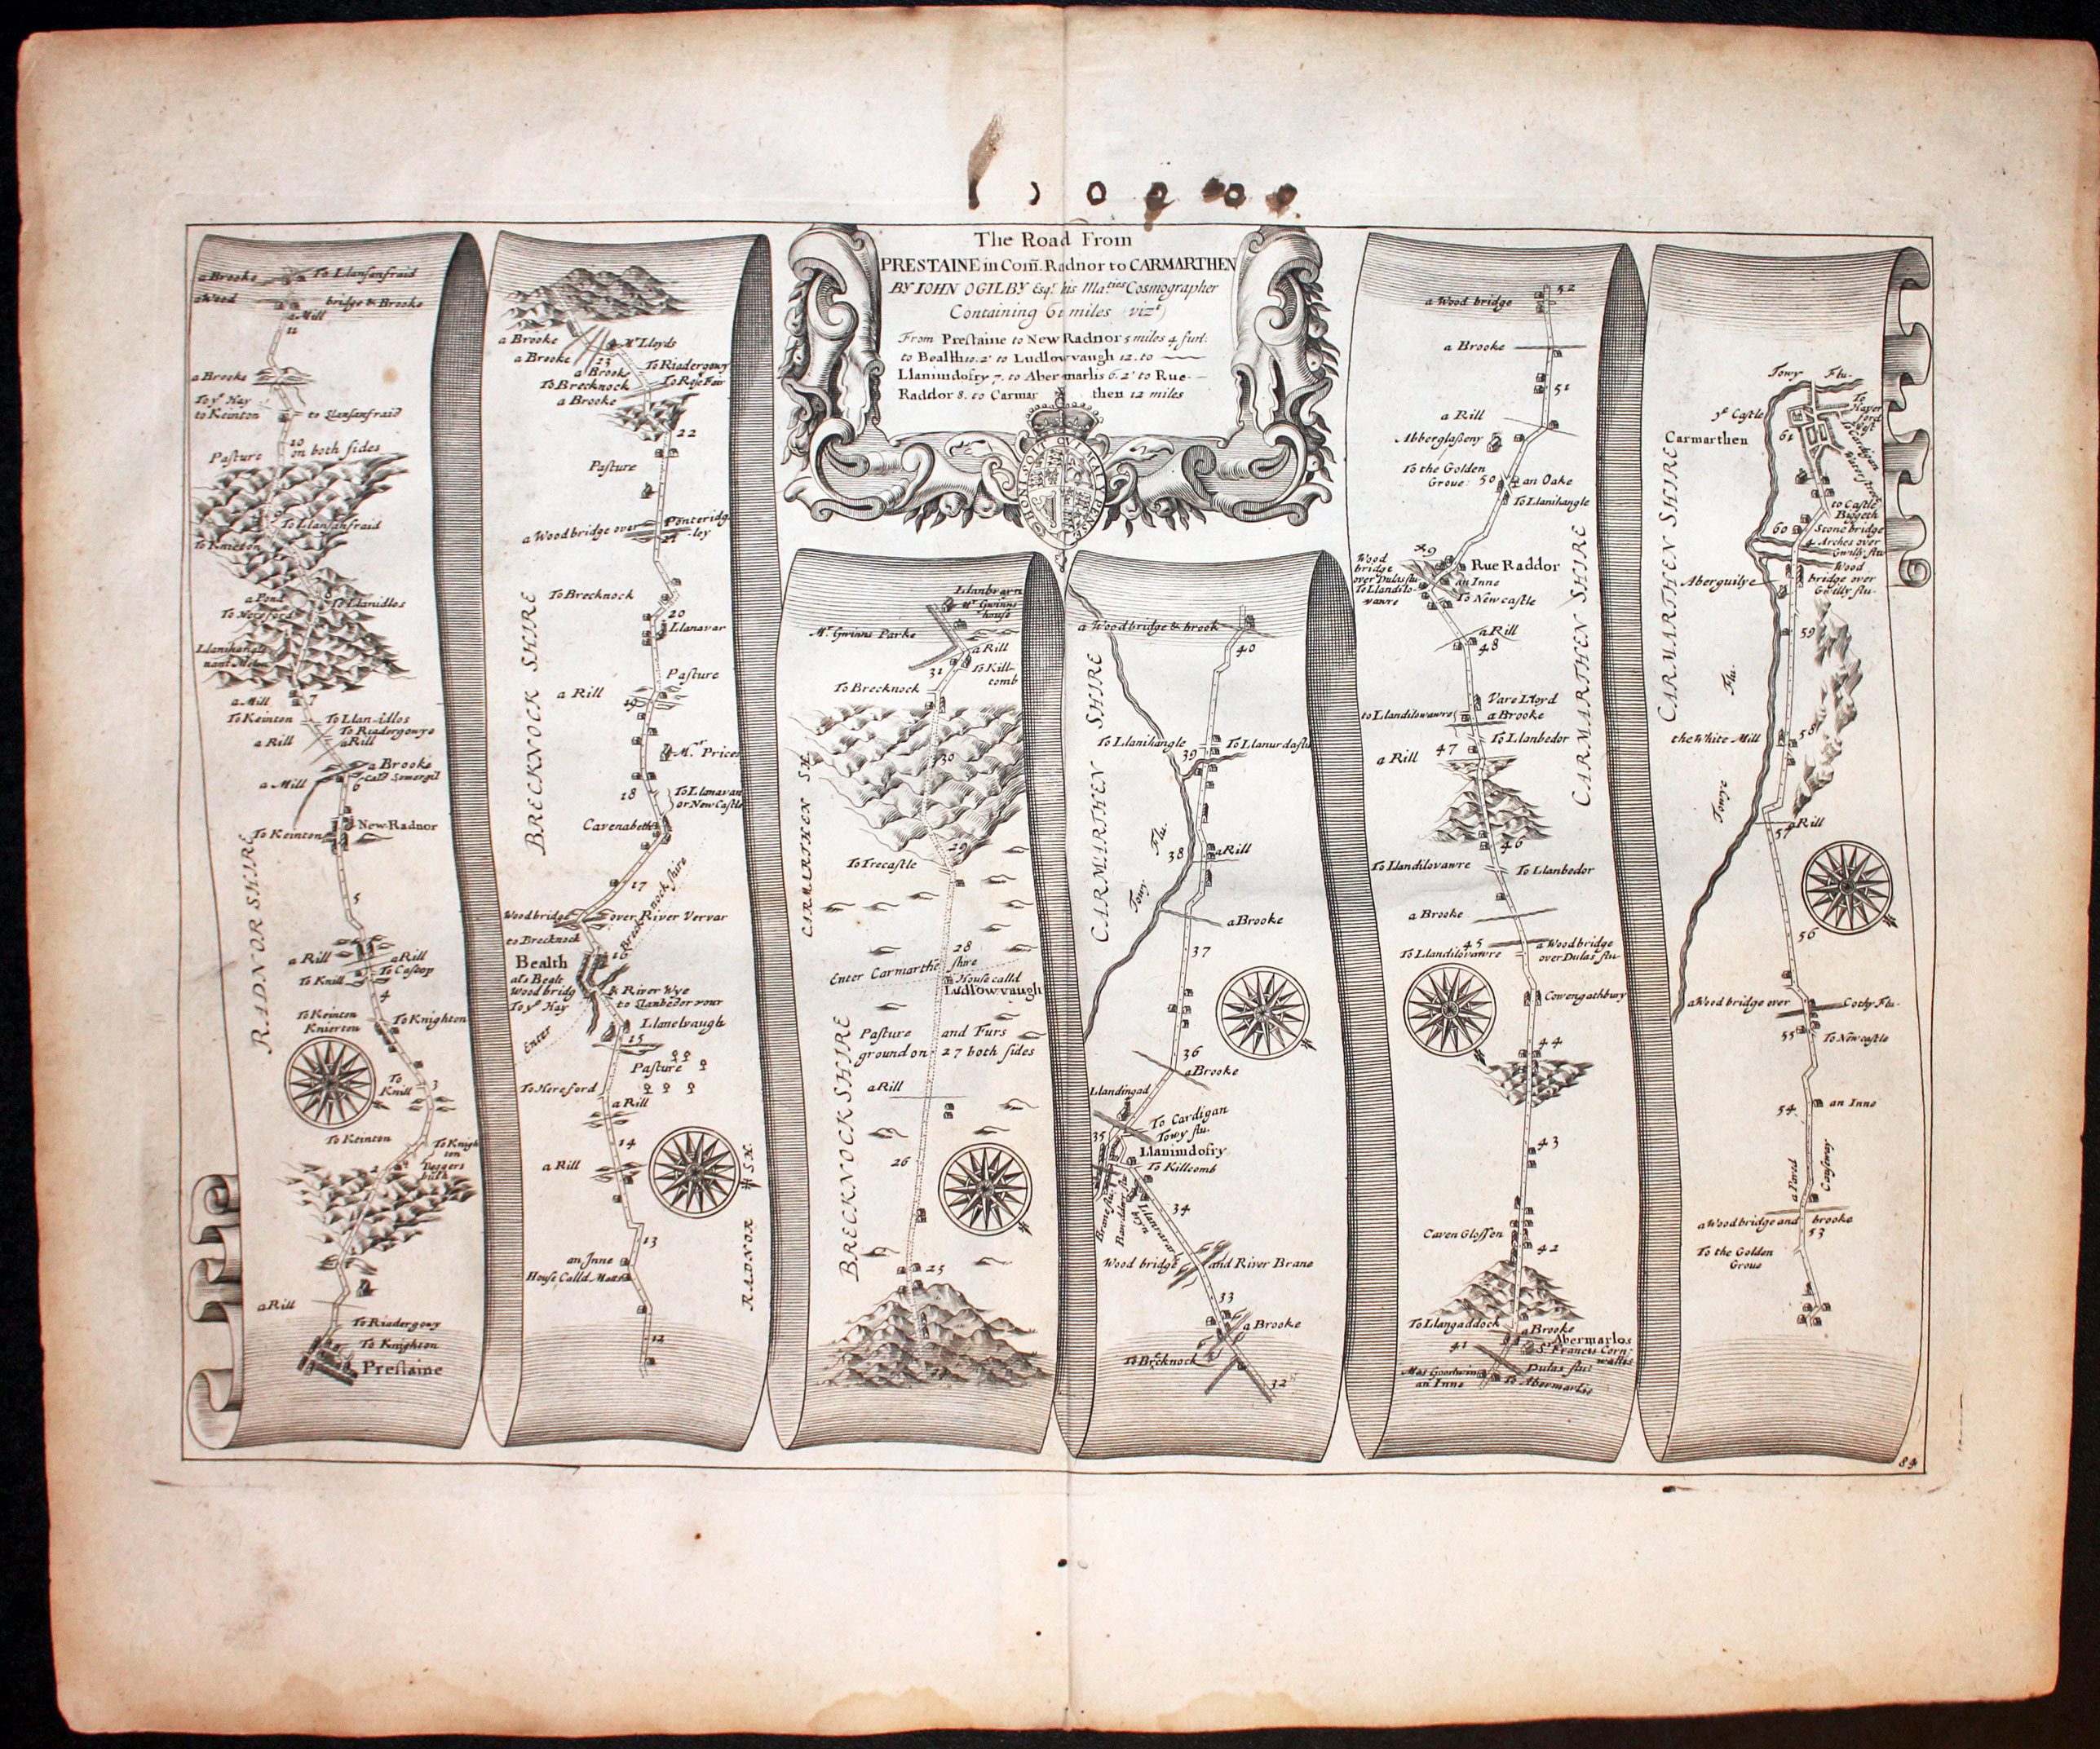 The Road From
PRESTAINE in Com̃. Radnor to CARMARTHEN
BY IOHN OGILBY Esqr. his Maties Cosmographer
Containing 61 miles (vizt)
From Prestaine to New Radnor 5 miles 4 furl:
to Bealth 10.2' to Ludlowvaugh 12. to
Llanimdofry 7. to Aber-marlis 6.2' to Rue-
Raddor 8. to Carmar then 12 miles
a Brooke
To Llansanfraid
a Wood bridge & Brooke
a Mill
11
a Brooke
To ye Hay
to Keinton
to Llansanfraid
10
Pasture on both sides
To Llansanfraid
To Knieton
a Pond
8
To Hereford
To Llanidlos
Llanihangle
nant
a Mill
7
To Keinton
To Llan-idlos
To Riadergowy
a Rill
a Rill
a Brooke
Cald Somergil
a Mill
6
To Keinton
New Radnor
RADNOR SHIRE
5
a Rill
a Rill
To Knill
To Cascop
4
To Keinton
Knierton
To Knighton
To
Knill
3
To Keinton
To Knigh
ton
2
Beggers
bush
a Rill
To Riadergowy
To Knighton
Prestaine
a Brooke
Mr Lloyds
a Brooke
23
a Brooke
To Riadergowy
To Brecknock
To Rose Fair
a Brooke
22
Pasture
a Wood bridge over
Ponteridg
-ley
21
To Brecknock
20
Llanavar
BRECKNOCK SHIRE
Pasture
a Rill
19
Mr. Prices
18
To Llanavan
or New Castle
Cavenabeth
17
Wood bridge over River Vervar
to Brecknock
Brecknock shire
16
Bealth
als Bealt
Wood bridg
River Wye
To ye Hay
to Llanbedor vour
Llanelvaugh
Enter
15
Pasture
To Hereford
a Rill
14
a Rill
13
an Inne
House Calld Maes
12
RADNOR SH.
Llanbrayn
Mr Gwinns
house
Mr. Gwinns Parke
a Rill
31
To Kill-
comb
To Brecknock
CARMARTHEN SH.
30
29
To Trecastle
28
Enter Carmarthe shire
House calld
Ludlowvaugh
Pasture and Furs
ground on 27 both sides
a Rill
BRECKNOCK SHIRE
26
25
a Wood bridge & brook
40
CARMARTHEN SHIRE
To Llanihangle
39
To Llanurdastu
Flu.
38
a Rill
Towy
a Brooke
37
36
a Brooke
Llandingad
To Cardigan
Towy flu.
35
Llanimdofry
To Killcomb
Brane flu.
34
Wood bridge and River Brane
33
a Brooke
To Brecknock
32
52
a Wood bridge
a Brooke
51
a Rill
Abberglasseny
To the Golden
Grove
50
an Oake
To Llanihangle
49
Wood
bridge
over Dulas flu
To Llandilo-
vawre
Rue Raddor
an Inne
To Newcastle
CARMARTHEN SHIRE
a Rill
48
Vare Lloyd
to Llandilovawre
a Brooke
To Llanbedor
47
a Rill
46
To Llandilovawre
To Llanbedor
a Brooke
45
a Wood bridge
over Dulas flu
To Llandilovawre
Cowengathbury
44
43
Caven Glossen
42
To Llangaddock
a Brooke
Abermarlos
Sr. Francis Corn-
wallis
41
Dulas flu:
Mas Goodwin
an Inne
To Abermarlis
Towy Flu.
ye Castle
To
Haver
ford
west
Carmarthen
61
To Cardigan
Water street
CARMARTHEN SHIRE
to Castle
Biggeth
60
Stone bridge
4 Arches over
Gwilly flu
Aberguilye
Wood
bridge over
Gwilly flu.
59
Flu.
the White Mill
58
Towye
57
a Rill
56
a Wood bridge over
Cothy Flu.
55
To Newcastle
54
an Inne
a Paved Causeway
a Wood bridge and brooke
53
To the Golden
Grove
84